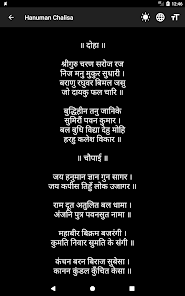 12:46
Hanuman Chalisa
॥ दोहा ॥
श्रीगुरु चरण सरोज रज
निज मनु मुकुर सुधारी ।
बरणु रघुवर बिमल जसु
जो दायकु फल चारि ॥
बुद्धिहीन तनु जानिके
सुमिरौं पवन कुमार ।
बल बुधि विद्या देहु मोहि
हरहु कलेश विकार ॥
॥ चौपाई ॥
जय हनुमान ज्ञान गुन सागर ।
जय कपीस तिहुँ लोक उजागर ॥
राम दूत अतुलित बल धामा ।
अंजनि पुत्र पवनसुत नामा ॥
महाबीर बिक्रम बजरंगी ।
कुमति निवार सुमति के संगी ॥
कंचन बरन बिराज सुबेसा ।
कानन कुंडल कुँचित केसा ॥